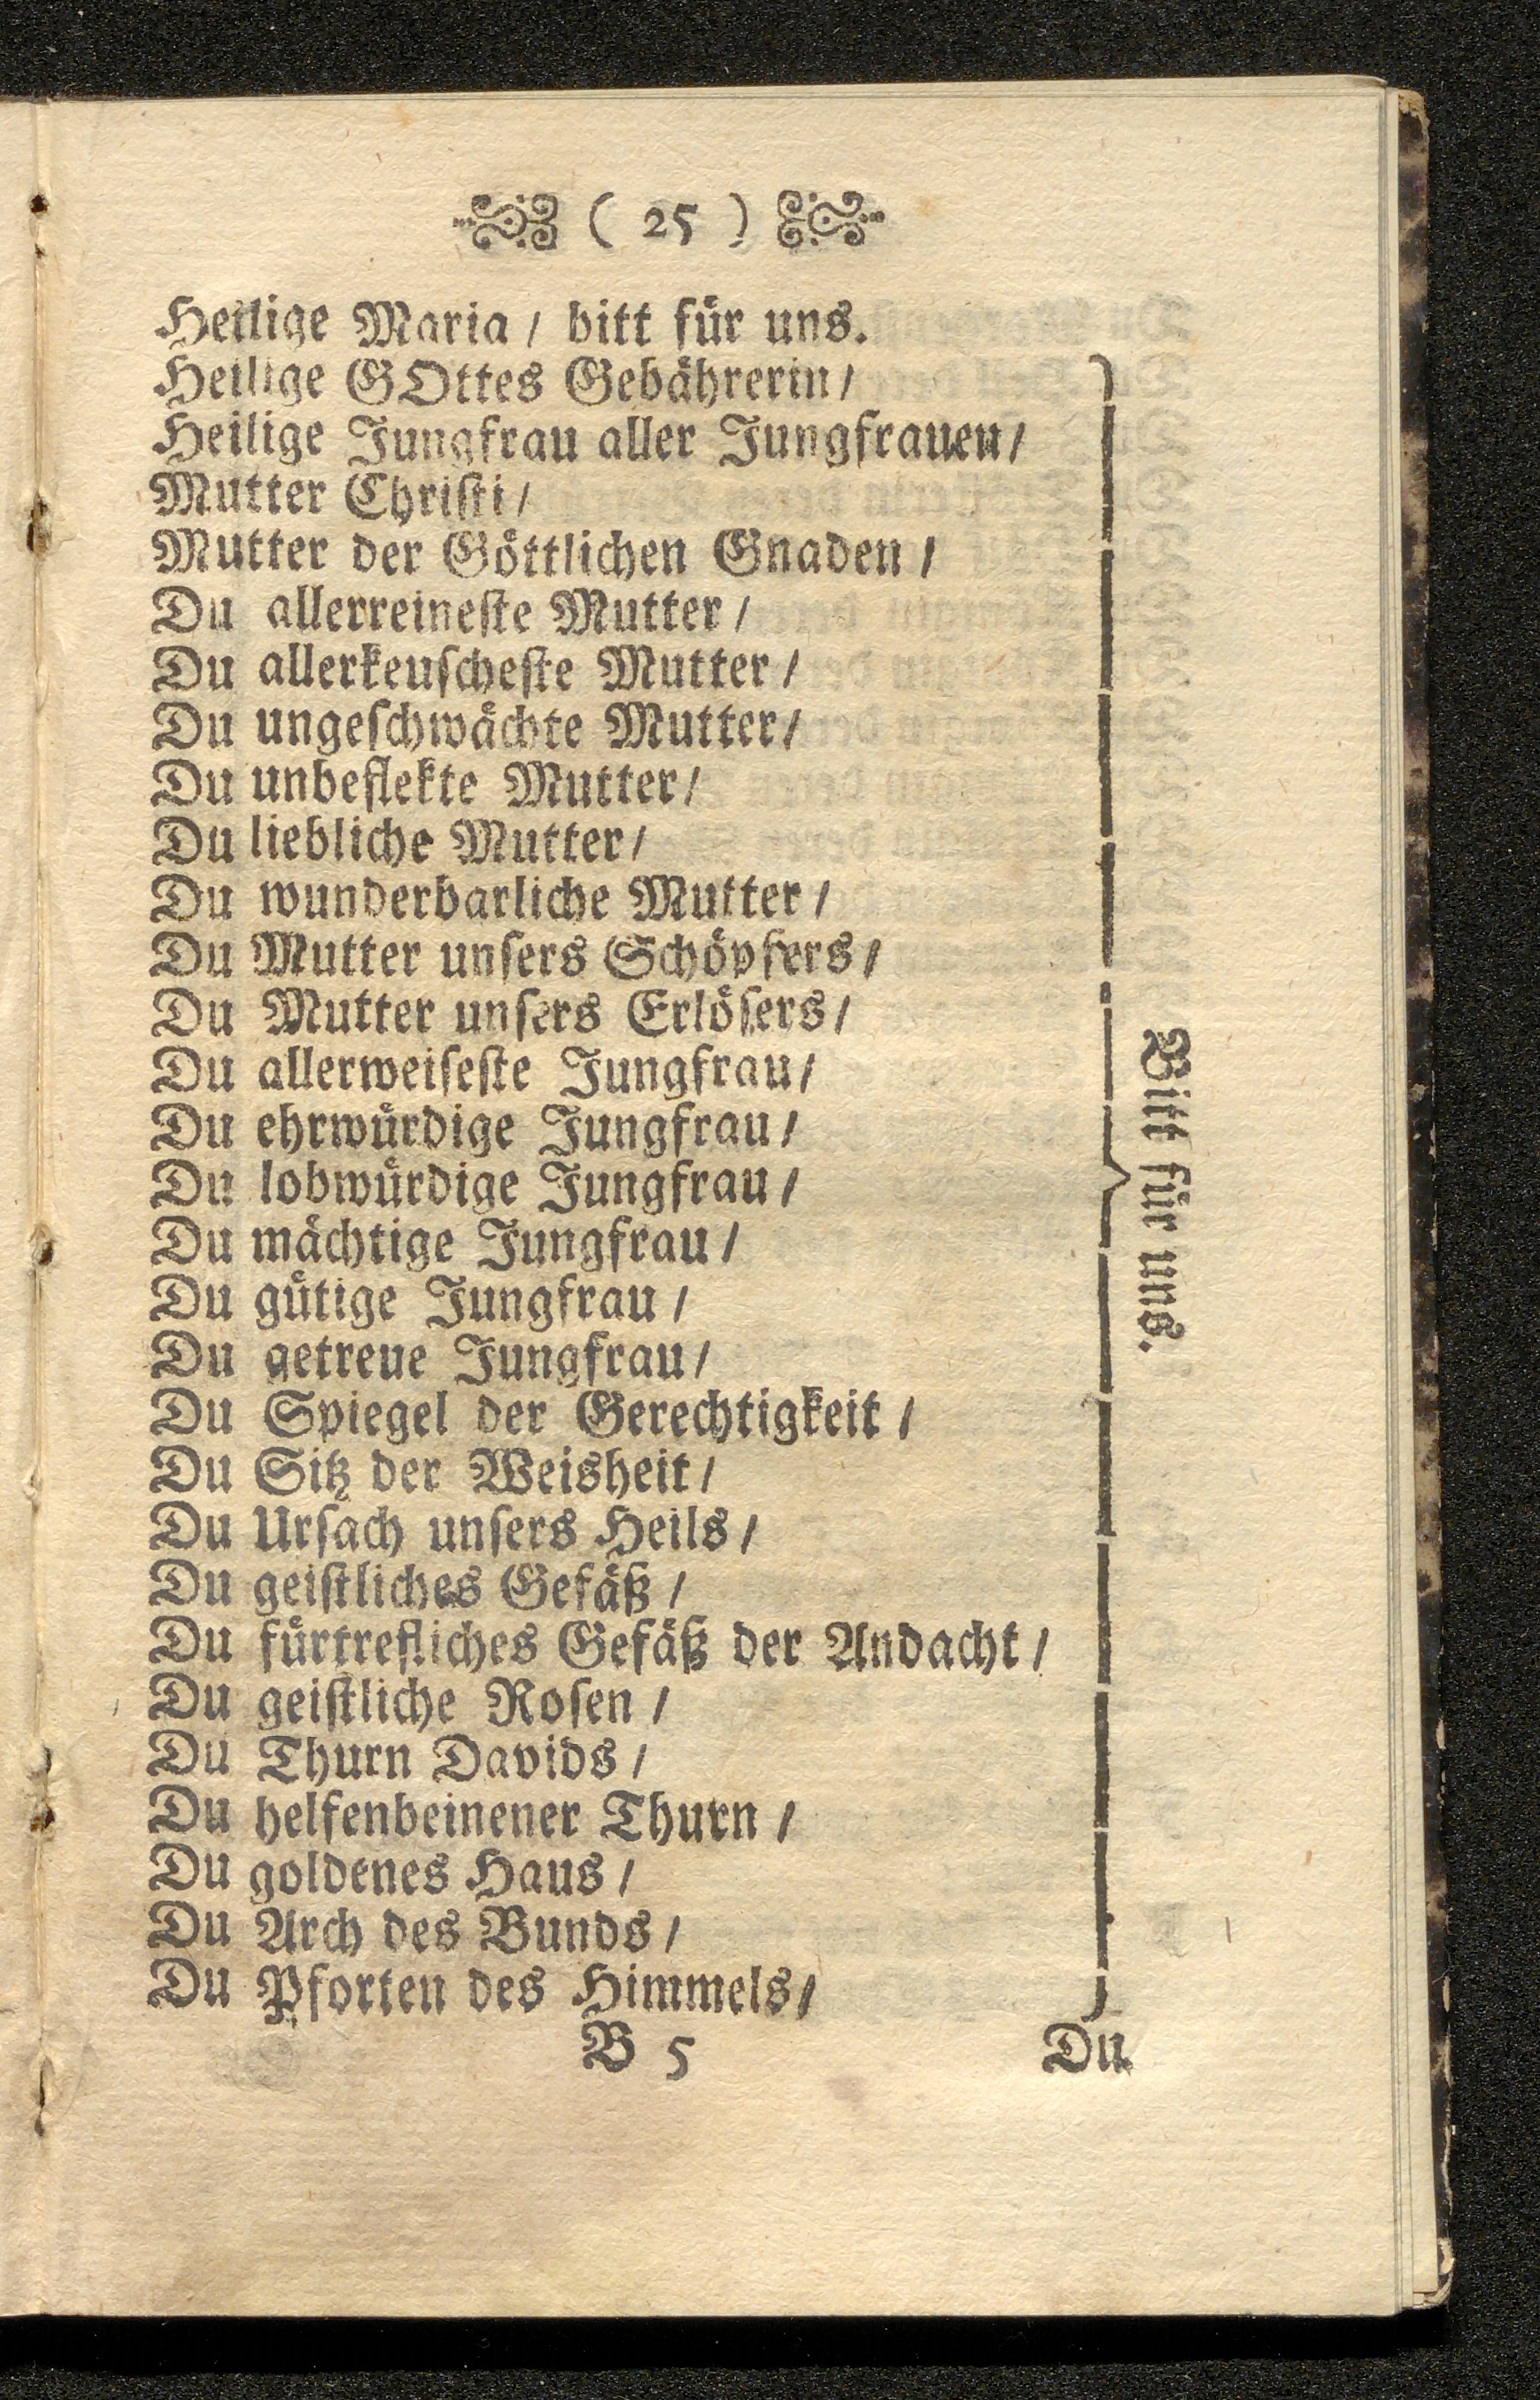 ( 25 )
Heilige Maria / bitt für uns.
Heilige GOttes Gebährerin /
Heilige Jungfrau aller Jungfrauen /
Mutter Christi /
Mutter der Göttlichen Gnaden /
Du allerreineste Mutter /
Du allerkeuscheste Mutter /
Du ungeschwächte Mutter /
Du unbeflekte Mutter /
Du liebliche Mutter /
Du wunderbarliche Mutter /
Du Mutter unsers Schöpfers /
Du Mutter unsers Erlösers /
Du allerweiseste Jungfrau /
Du ehrwürdige Jungfrau /
Du lobwürdige Jungfrau /
Du mächtige Jungfrau /
Du gütige Jungfrau /
Du getreue Jungfrau /
Du Spiegel der Gerechtigkeit /
Du Sitz der Weisheit /
Du Ursach unsers Heils /
Du geistliches Gefäß /
Du fürtrefliches Gefäß der Andacht /
Du geistliche Rosen /
Du Thurn Davids /
Du helfenbeinener Thurn /
Du goldenes Haus /
Du Arch des Bunds /
Du Pforten des Himmels /
Bitt für uns.
B 5 Du